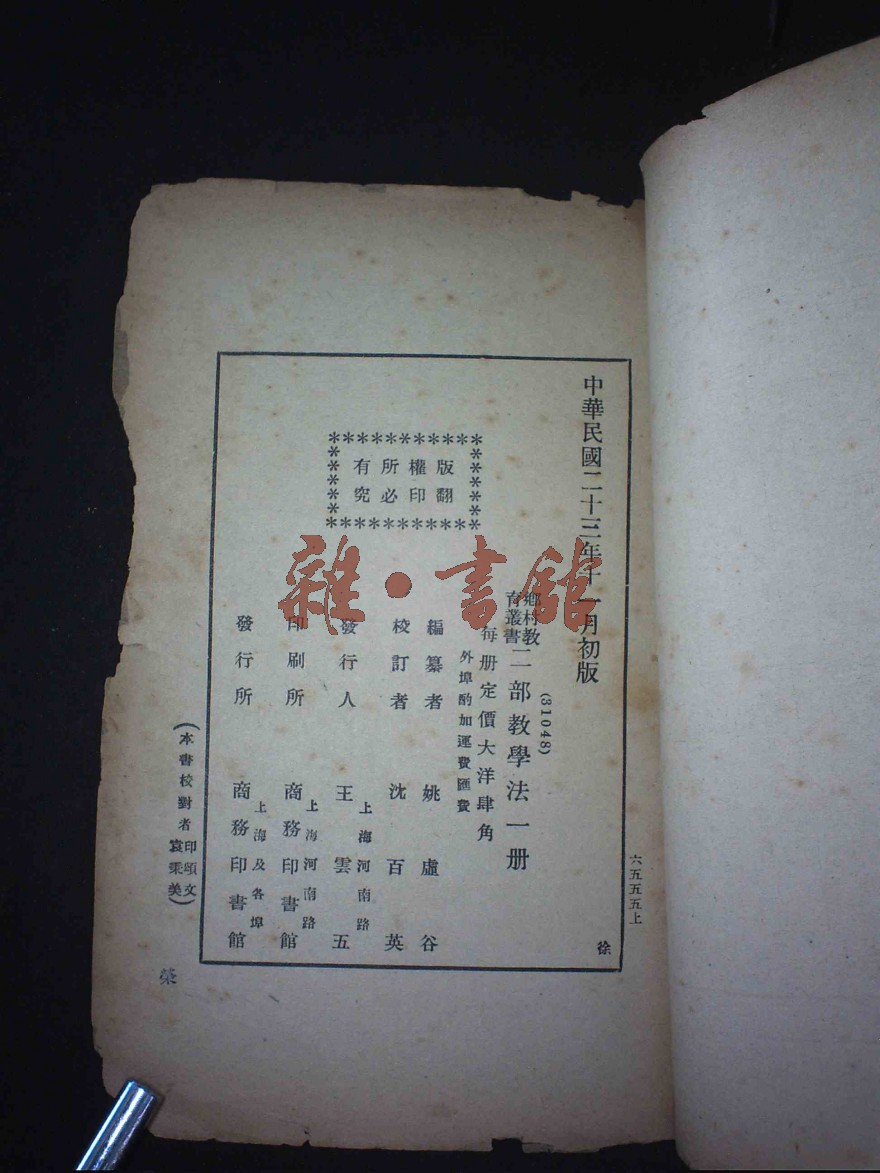 中華民國二十三年十一月初版
六五五五上
徐
(31048)
鄉村教育叢書 二部教學法一册
每册定價大洋肆角
外埠酌加運費匯費
版權所有
翻印必究
編纂者 姚虛谷
校訂者 沈百英
發行人 王雲五
上海河南路
印刷所 商務印書館
上海河南路
發行所 商務印書館
上海及各埠
(本書校對者印頌文 袁秉美)
榮
雜·書館